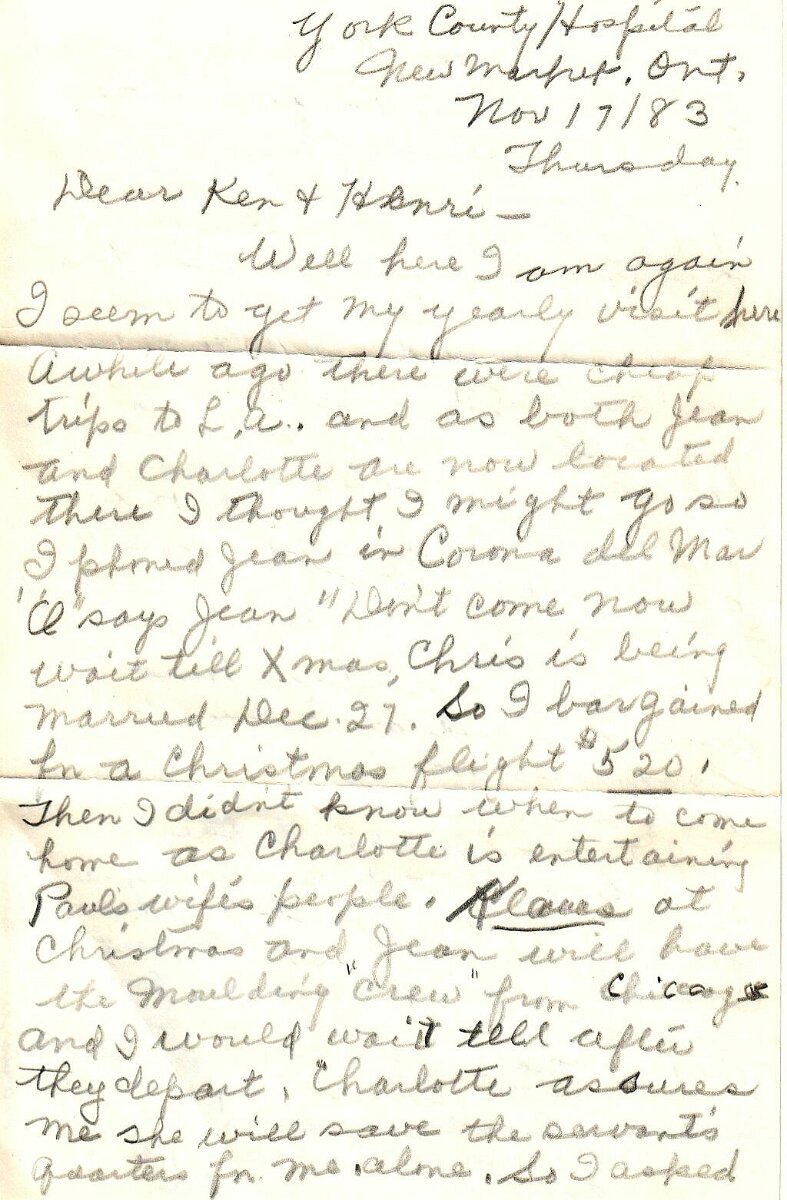 York County Hospital
New Market, Ont.
Nov 17/83
Thursday.
Dear Ken & Henri —
Well here I am again
I seem to get my yearly visit here
Awhile ago there were cheap
trips to L.A.. and as both Jean
and Charlotte are now located
there I thought I might go so
I phoned Jean in Corona del Mar
"O" says Jean "Don't come now
wait till Xmas, Chris is being
married Dec. 27. So I bargained
for a Christmas flight $520.
Then I didn't know when to come
home as Charlotte is entertaining
Pauls wife's people. at
Christmas and Jean will have
the Moulding "crew" from Chicago
and I would wait till after
they depart. Charlotte assures
me she will save the servant's
quarters for me alone. So I asked